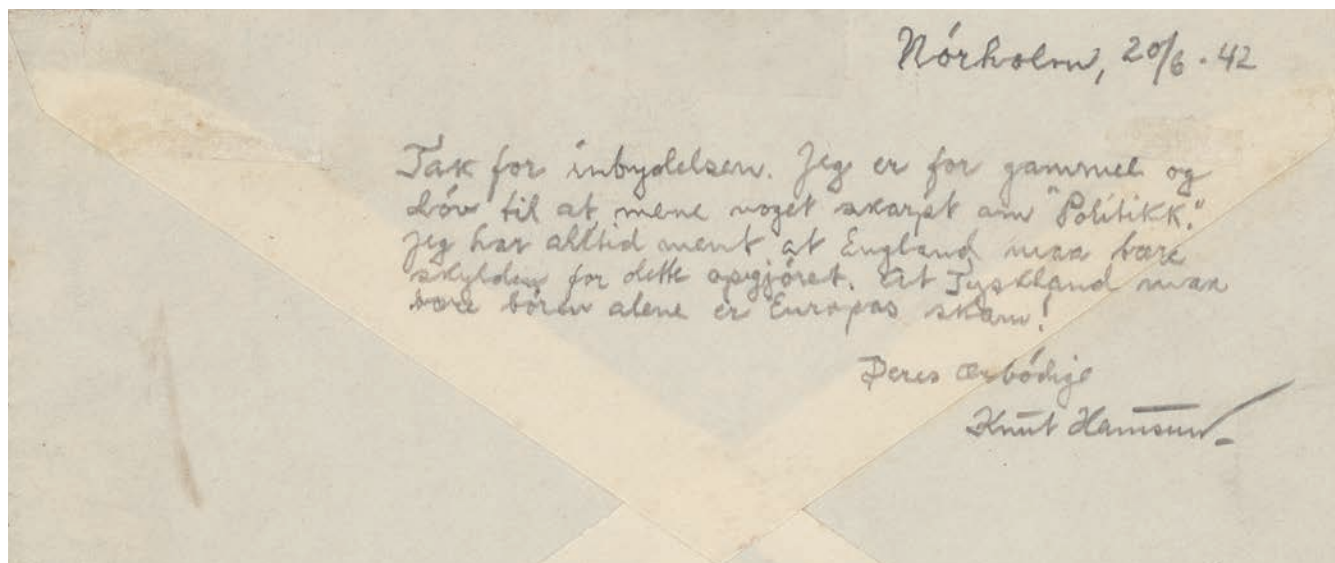 Nórholm, 20/6 . 42
Tak for inbydelsen. Jeg er for gammel og
dóv til at mene noget skarpt om "Politikk."
Jeg har alltid ment at England maa bære
skylden for dette opgjóret. At Tyskland maa
bære bóren alene er Europas skam!
Deres ærbódige
Knut Hamsun.